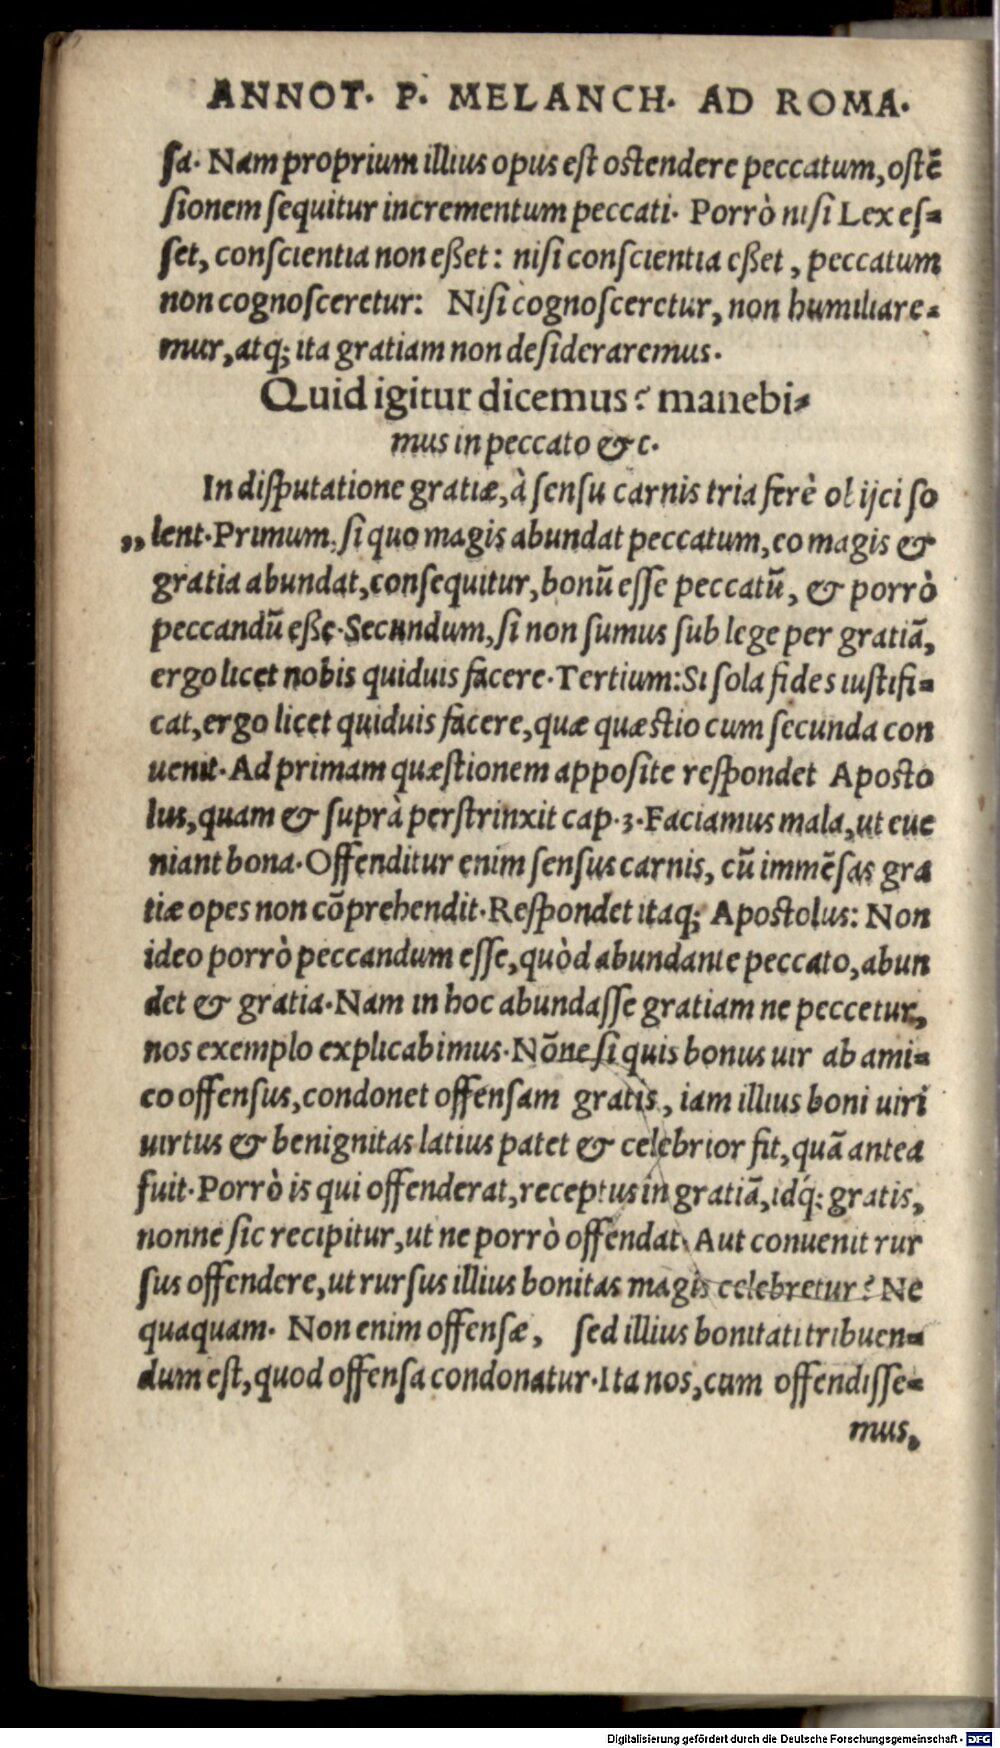 ANNOT. P. MELANCH. AD ROMA.
sa. Nam proprium illius opus est ostendere peccatum, ostē
sionem sequitur incrementum peccati. Porrò nisi Lex es-
set, conscientia non eßet: nisi conscientia eßet, peccatum
non cognosceretur: Nisi cognosceretur, non humiliare-
mur, atq; ita gratiam non desideraremus.
Quid igitur dicemus? manebi-
mus in peccato & c.
In disputatione gratiæ, à sensu carnis tria ferè obijci so
„ lent. Primum, si quo magis abundat peccatum, eo magis &
gratia abundat, consequitur, bonū esse peccatū, & porrò
peccandū eße. Secundum, si non sumus sub lege per gratiā,
ergo licet nobis quiduis facere. Tertium: Si sola fides iustifi-
cat, ergo licet quiduis facere, quæ quæstio cum secunda con
uenit. Ad primam quæstionem apposite respondet Aposto
lus, quam & suprà perstrinxit cap. 3. Faciamus mala, ut eue
niant bona. Offenditur enim sensus carnis, cū immēsas gra
tiæ opes non cōprehendit. Respondet itaq; Apostolus: Non
ideo porrò peccandum esse, quòd abundante peccato, abun
det & gratia. Nam in hoc abundasse gratiam ne peccetur,
nos exemplo explicabimus. Nōne si quis bonus uir ab ami-
co offensus, condonet offensam gratis, iam illius boni uiri
uirtus & benignitas latius patet & celebrior fit, quā antea
fuit. Porrò is qui offenderat, receptus in gratiā, idq́; gratis,
nonne sic recipitur, ut ne porrò offendat. Aut conuenit rur
sus offendere, ut rursus illius bonitas magis celebretur? Ne
quaquam. Non enim offensæ, sed illius bonitati tribuen-
dum est, quod offensa condonatur. Ita nos, cum offendisse-
mus,
Digitalisierung gefördert durch die Deutsche Forschungsgemeinschaft - DFG